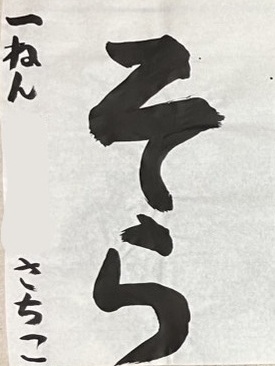 そら
一ねん
さちこ